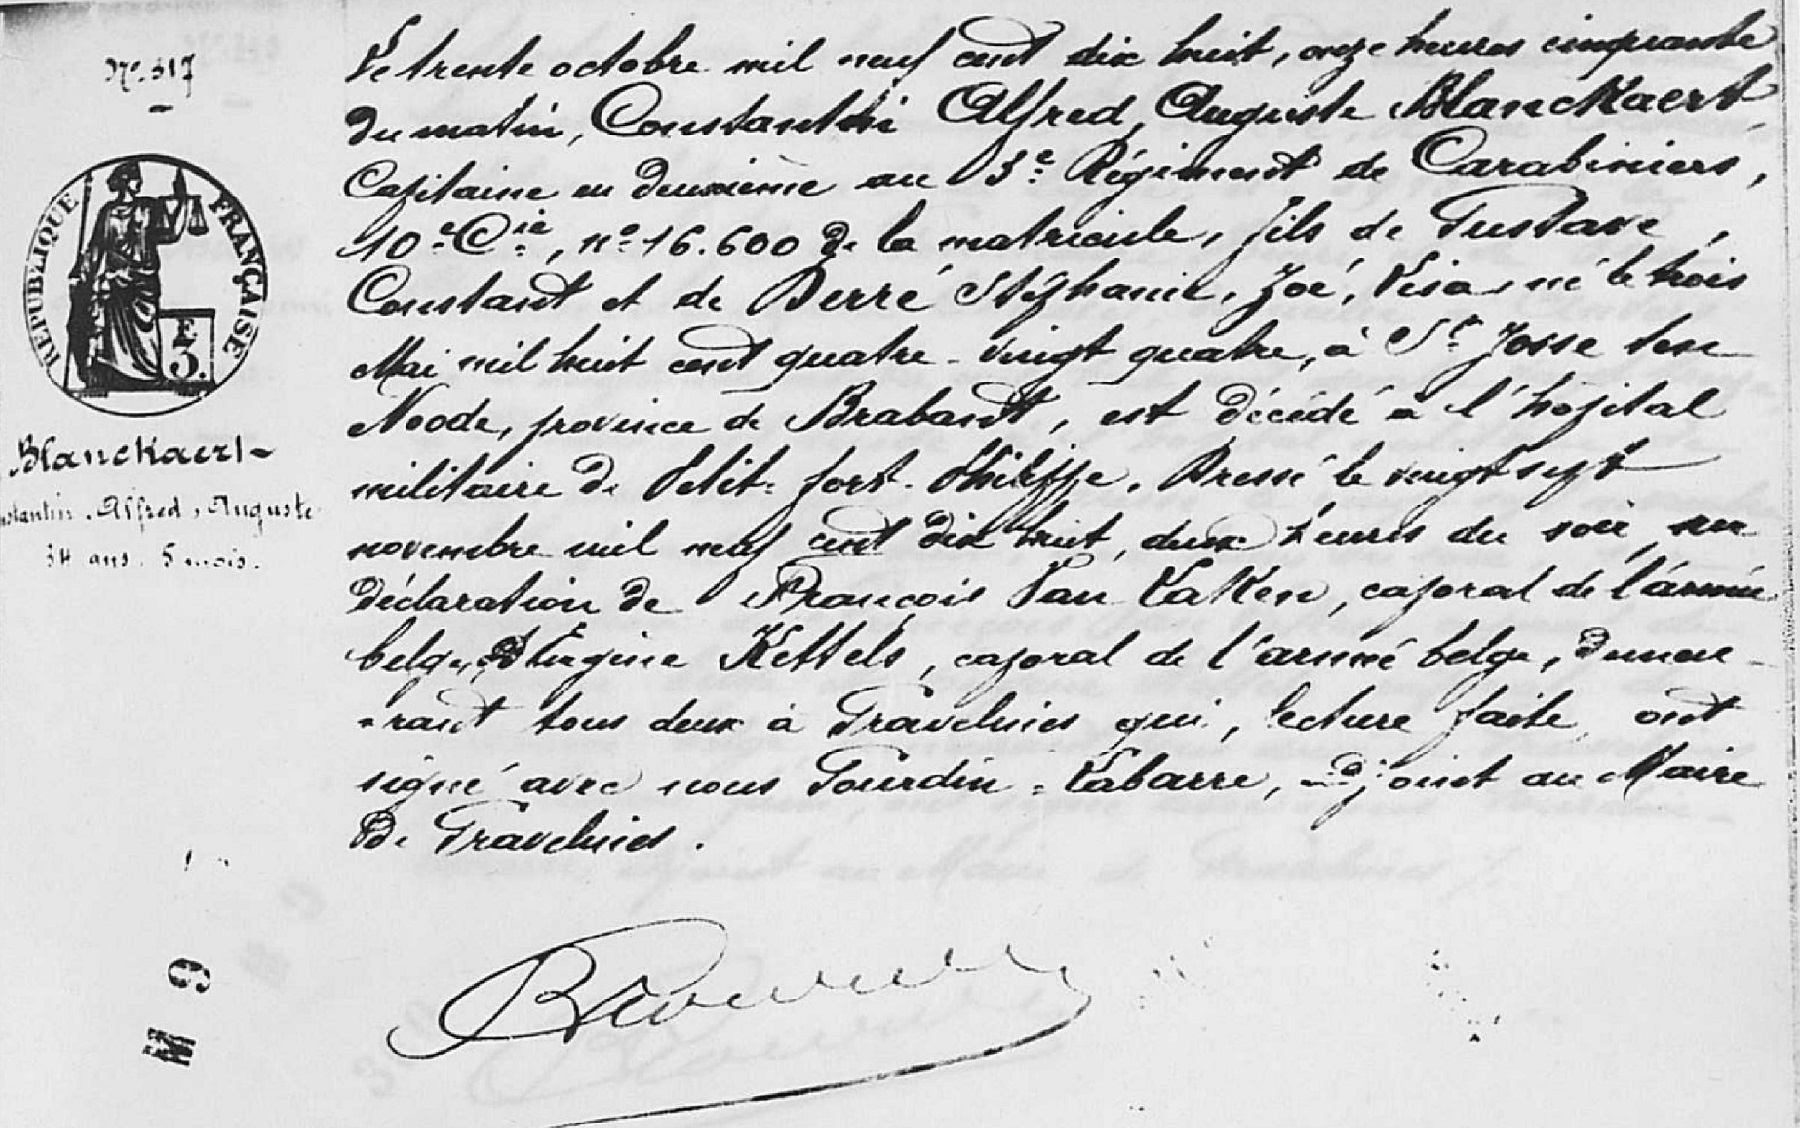 No 317
RÉPUBLIQUE FRANÇAISE
E
3.
Blanckaert
Constantin, Alfred, Auguste
34 ans. 5 mois.
M 9
Le trente octobre mil neuf cent dix huit, onze heures cinquante
du matin, Constantin Alfred, Auguste Blanckaert,
Capitaine en deuxième au 3e Régiment de Carabiniers,
10e Cie, no 16.600 de la matricule, fils de Gustave,
Constant et de Berré Stéphanie, Zoé, né le trois
Mai mil huit cent quatre-vingt quatre, à St Josse ten
Noode, province de Brabant, est décédé à l'hôpital
militaire de Petit-fort-Philippe. Dressé le vingt sept
novembre mil neuf cent dix huit, deux heures du soir, sur
déclaration de François Van Laken, caporal de l'armée
belge, Eugène Kettels, caporal de l'armé belge, demeu-
-rant tous deux à Gravelines qui, lecture faite, ont
signé avec nous Gourdin-Labarre, adjoint au Maire
de Gravelines.